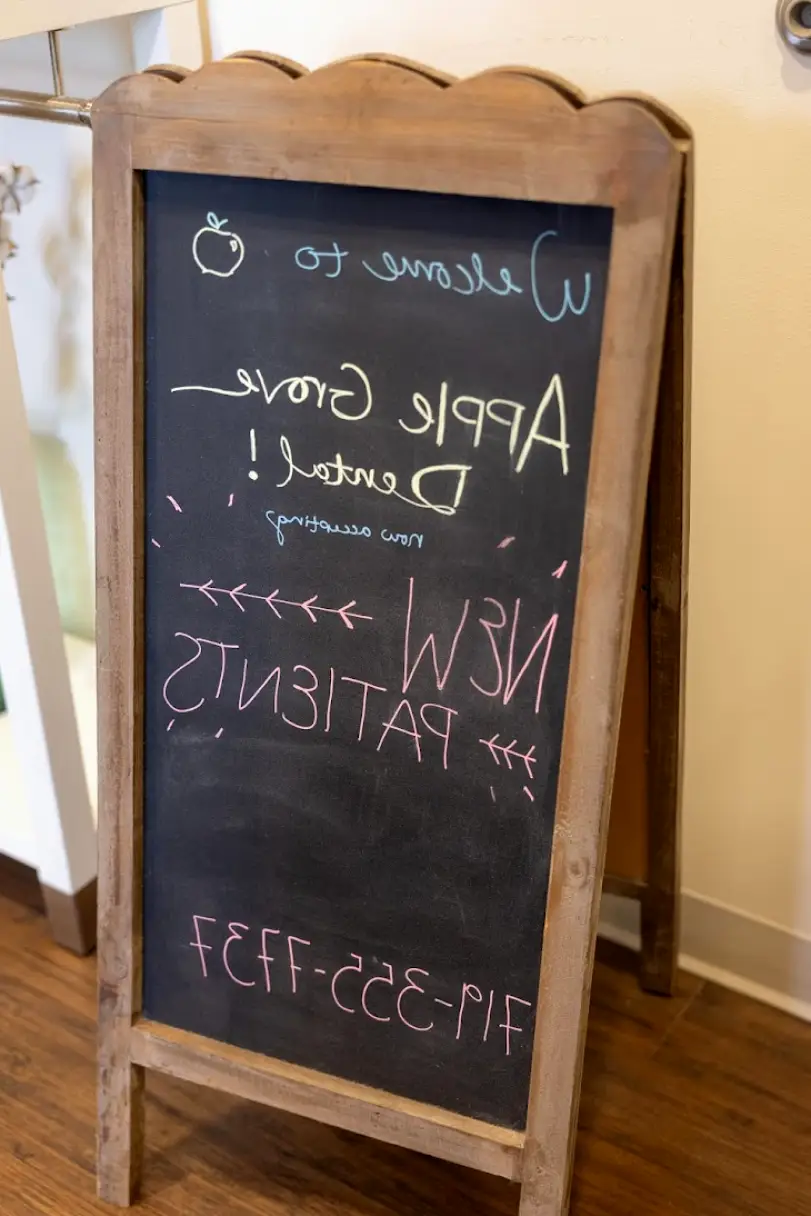 Welcome to
Apple Grove
Dental!
now accepting
NEW
PATIENTS
719-355-7737